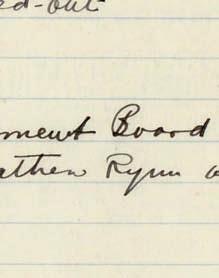 ed-out
ment Board
atthew Ryan a